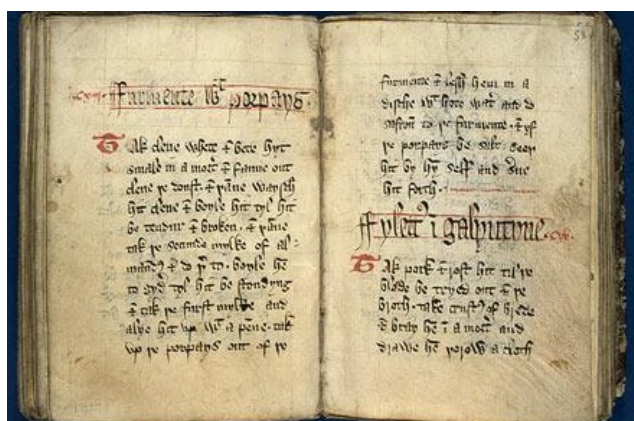 Furmente wt porpays.
Tak clene whete & bete hyt
smale in a mortr & fanne out
clene þe doust. & þane waysch
hit clene & boyle hit tyl hit
be tendur & broken. & þane
tak þe secunde mylke of al-
mandys & do þr to. boyle he
to gydr tyl hit be stondyng
& tak þe furst mylke and
alye hit up wt a pene. tak
up þe porpays out of þe
furmente & lesh hem in a
dische wt hote watr and do
safron to þe furmente. & yf
þe porpays be salt. seeþ
hit by hym self and serue
hit forth.
ffylettes i galyntyne.
Tak pork & rost hit til þe
blode be tryed out & þe
broth. take crustys of brede
& bray he i a mortr and
drawe he þorow a cloth